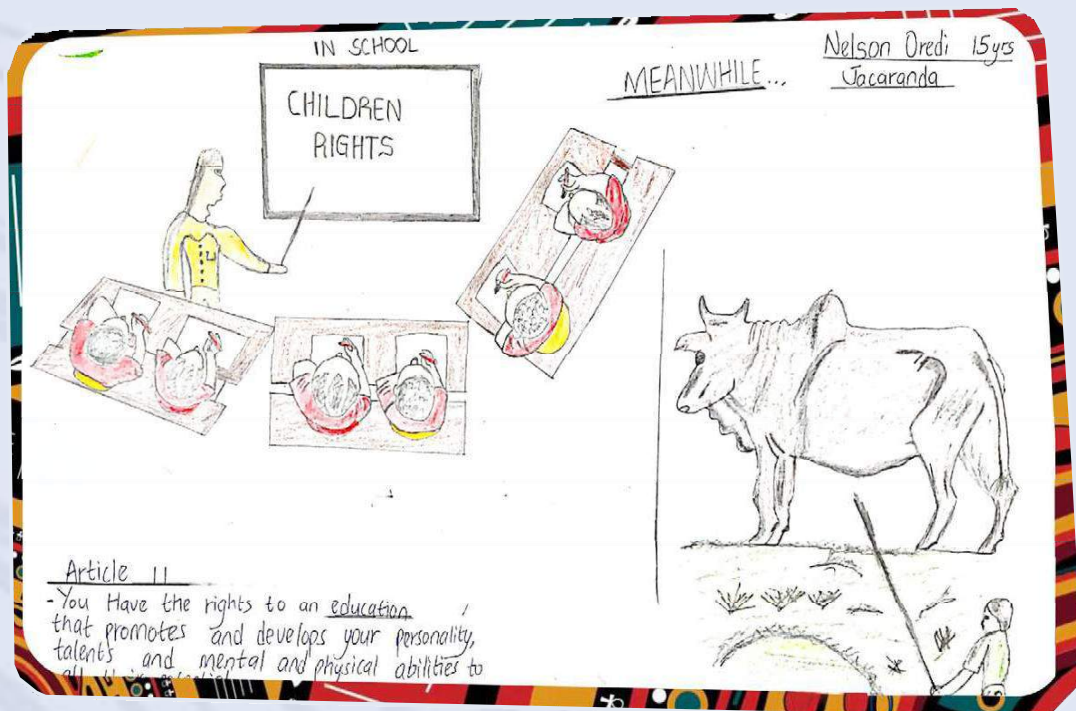 IN SCHOOL
CHILDREN
RIGHTS
MEANWHILE...
Nelson Oredi 15yrs
Jacaranda
Article 11
-You Have the rights to an education
that promotes and develops your personality,
talents and mental and physical abilities to